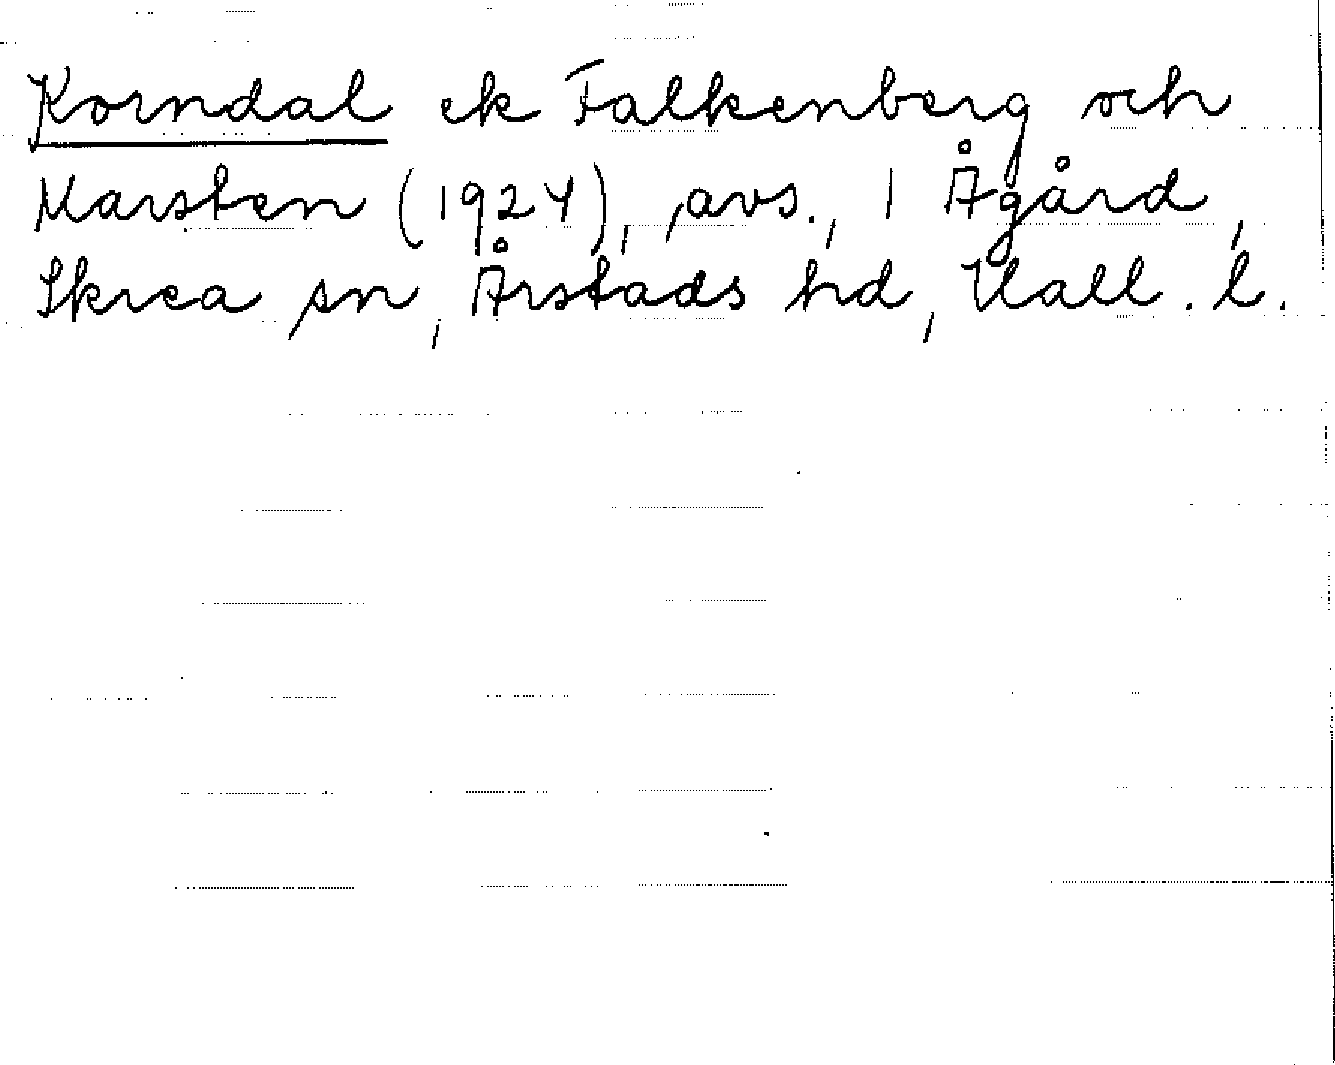 Korndal ek Falkenberg och
Marsten (1924), avs., 1 Ågård,
Skrea sn, Årstads hd, Hall. l.